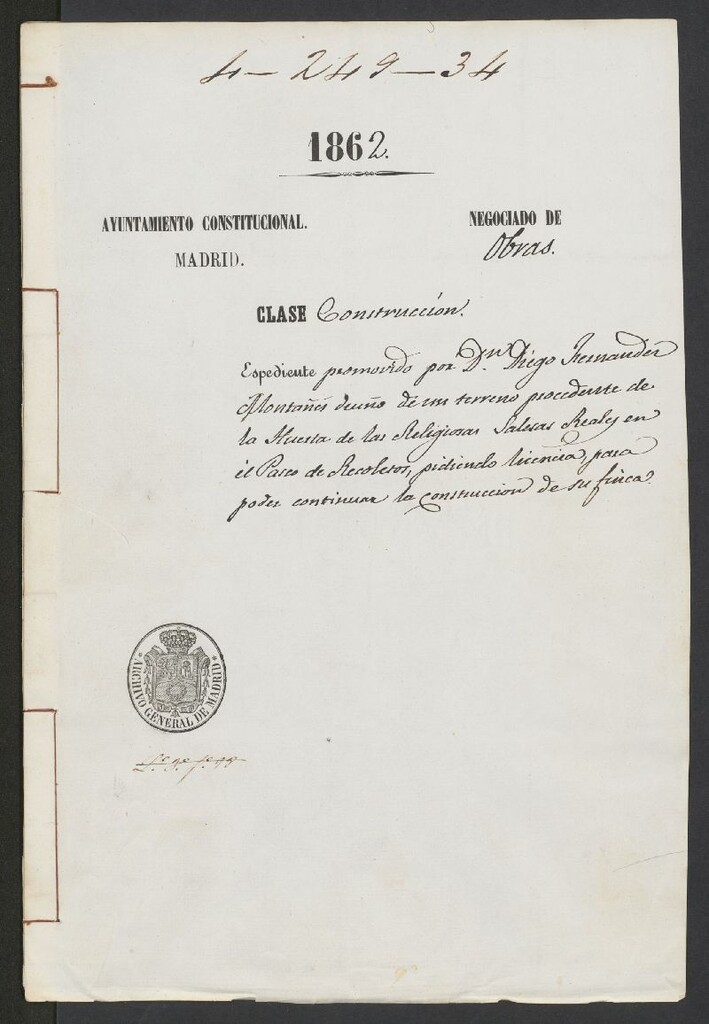 4 - 249 - 34
1862.
AYUNTAMIENTO CONSTITUCIONAL.
MADRID.
NEGOCIADO DE
Obras.
CLASE Construcción.
Espediente promovido por Dn. Diego Fernandez
Montañés dueño de un terreno procedente de
la Huerta de las Religiosas Salesas Reales en
el Paseo de Recoletos, pidiendo licencia, para
poder continuar la construccion de su finca.
ARCHIVO GENERAL DE MADRID